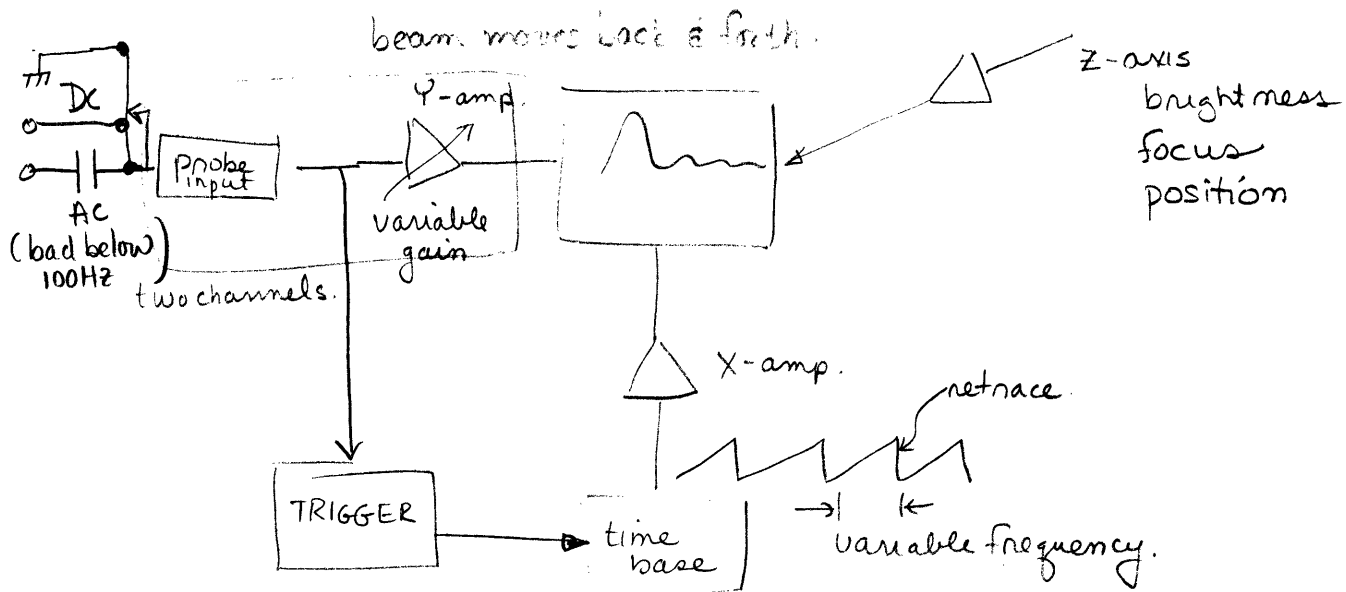 beam moves back & forth.
DC
AC
(bad below)
100Hz
probe
input
Y-amp.
variable
gain
two channels.
Z-axis
brightness
focus
position
X-amp.
retrace.
TRIGGER
time
base
variable frequency.